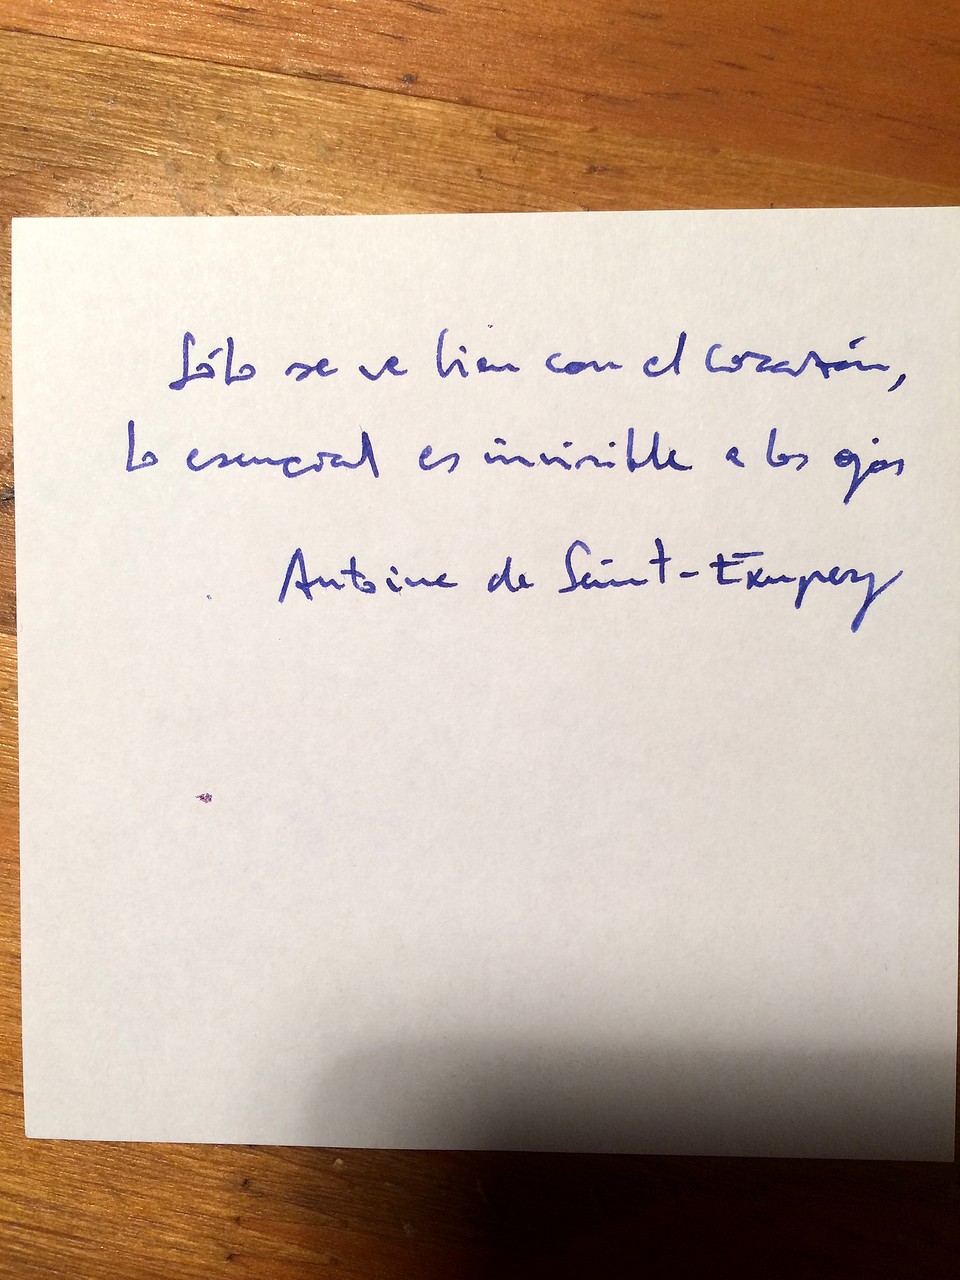 Sólo se ve bien con el corazón,
lo esencial es invisible a los ojos
Antoine de Saint-Exupery